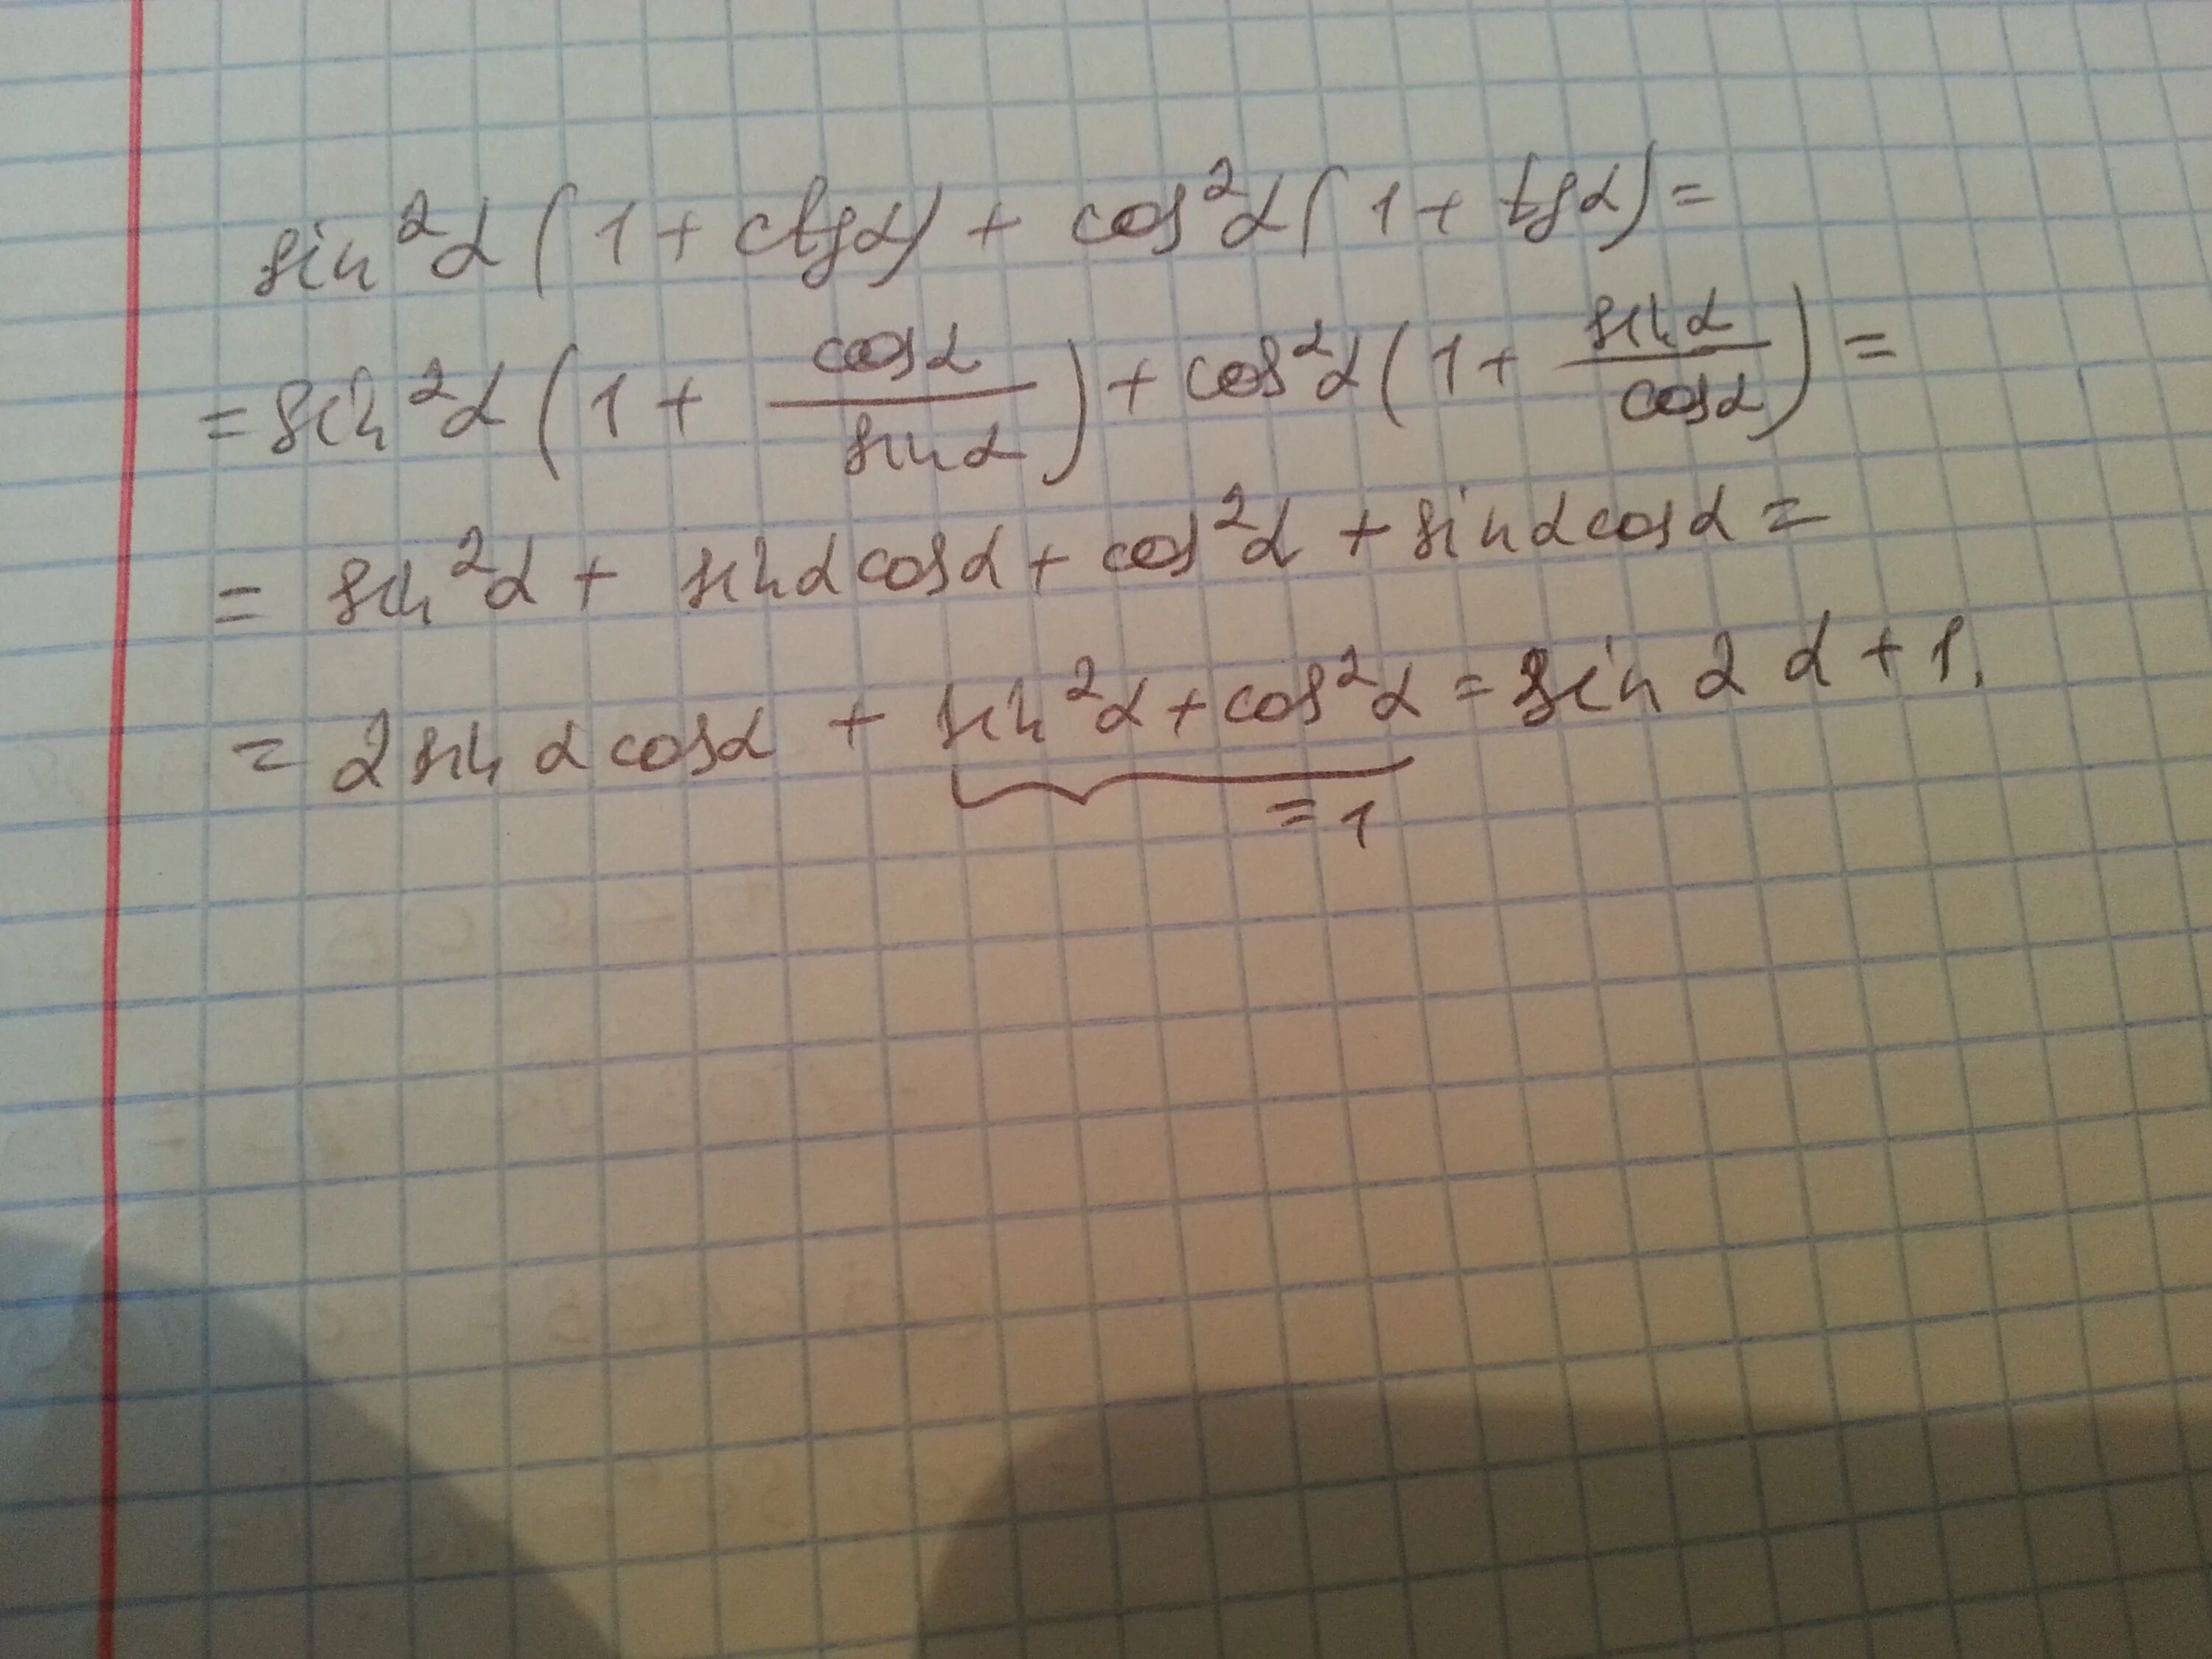 sin²α(1 + ctgα) + cos²α(1 + tgα) =
= sin²α(1 + cosα/sinα) + cos²α(1 + sinα/cosα) =
= sin²α + sinαcosα + cos²α + sinαcosα =
= 2sinαcosα + sin²α + cos²α = sin2α + 1.
= 1